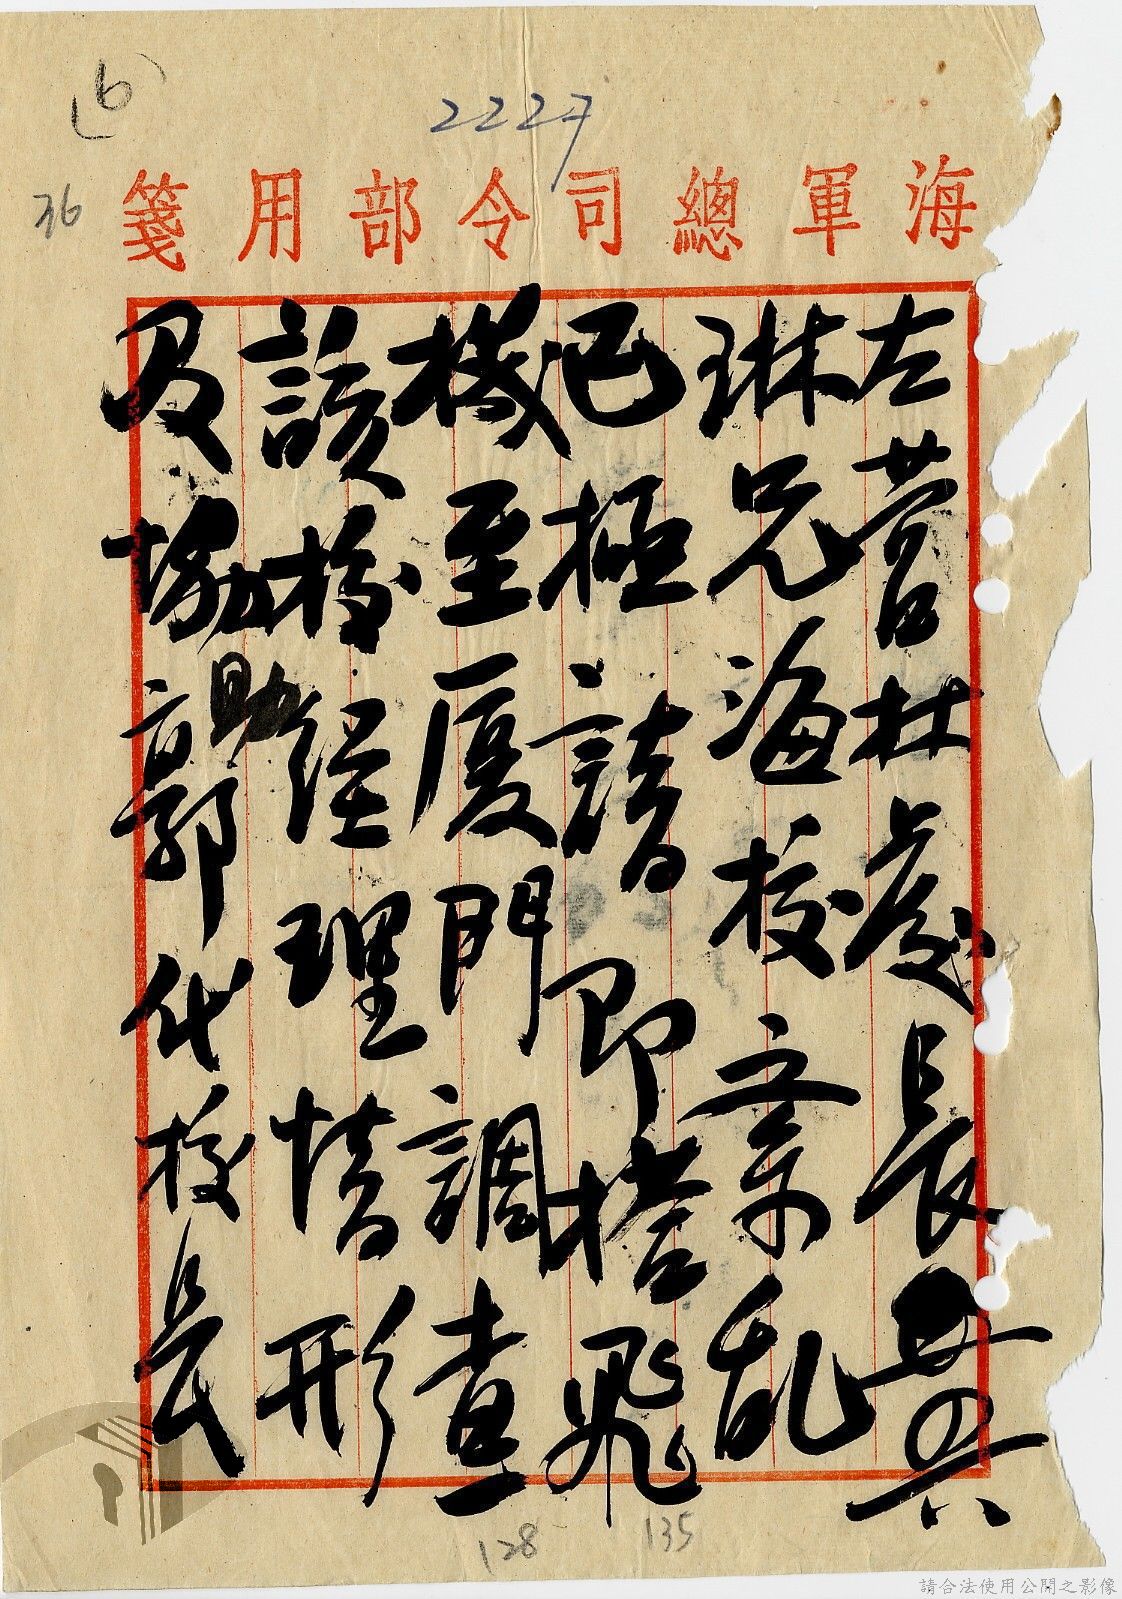 (6)
2227
36
海軍總司令部用箋
左營林處長㒷
琳兄海校業亂
已極請即搭飛
機至厦門調查
該校經理情形
及協助郭代校長
128
135
請合法使用公開之影像